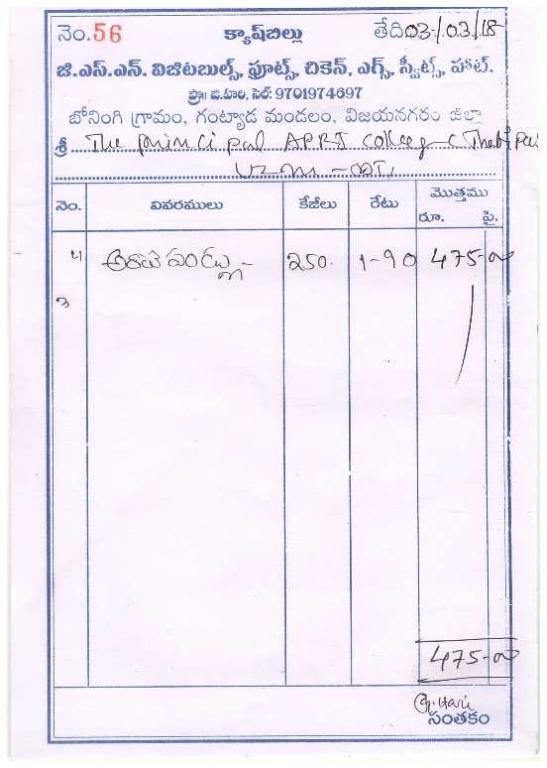 నెం. 56 క్యాష్‌బిల్లు తేది 03-/03/18
జి.ఎస్.ఎన్. విజిటబుల్స్, ఫ్రూట్స్, చికెన్, ఎగ్స్, స్వీట్స్, హాట్.
ప్రొ॥ బి.హరి, సెల్: 9701974697
బోనింగి గ్రామం, గంట్యాడ మండలం, విజయనగరం జిల్లా
శ్రీ The principal APRJ College
నెం. వివరములు కేజీలు రేటు మొత్తము
రూ. పై.
అరటి పండ్లు- 250. 1-90 475-00
475-00
Ch. Hari
సంతకం